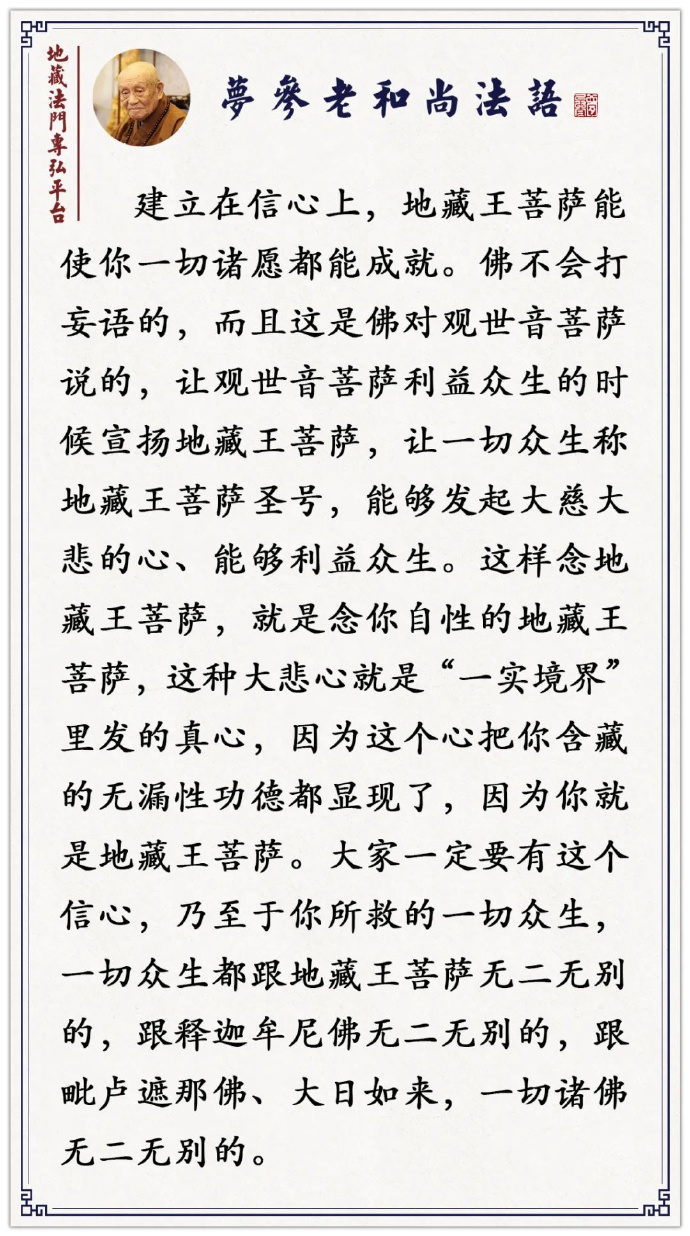 地藏法門專弘平台
夢參老和尚法語
建立在信心上，地藏王菩萨能
使你一切诸愿都能成就。佛不会打
妄语的，而且这是佛对观世音菩萨
说的，让观世音菩萨利益众生的时
候宣扬地藏王菩萨，让一切众生称
地藏王菩萨圣号，能够发起大慈大
悲的心、能够利益众生。这样念地
藏王菩萨，就是念你自性的地藏王
菩萨，这种大悲心就是“一实境界”
里发的真心，因为这个心把你含藏
的无漏性功德都显现了，因为你就
是地藏王菩萨。大家一定要有这个
信心，乃至于你所救的一切众生，
一切众生都跟地藏王菩萨无二无别
的，跟释迦牟尼佛无二无别的，跟
毗卢遮那佛、大日如来，一切诸佛
无二无别的。